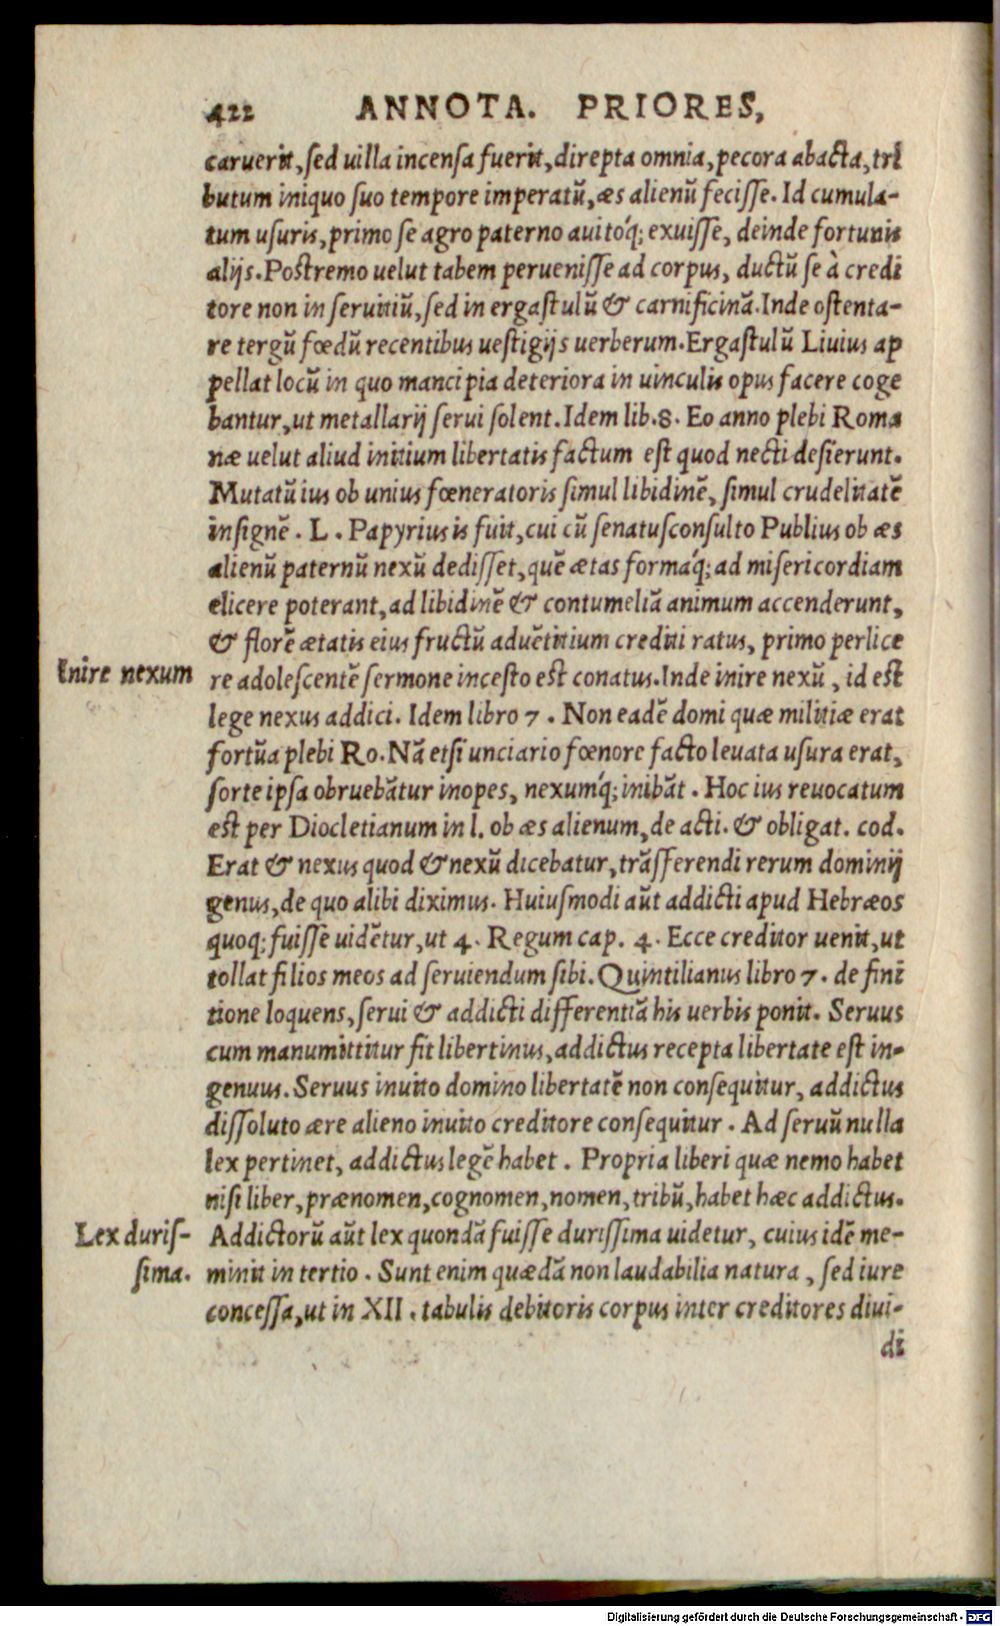 422 ANNOTA. PRIORES,
caruerit, sed uilla incensa fuerit, direpta omnia, pecora abacta, tri
butum iniquo suo tempore imperatū, æs alienū fecisse. Id cumula-
tum usuris, primo se agro paterno auitoq́; exuisse, deinde fortunis
alijs. Postremo uelut tabem peruenisse ad corpus, ductū se à credi
tore non in seruitiū, sed in ergastulū & carnificinā. Inde ostenta-
re tergū fœdū recentibus uestigijs uerberum. Ergastulū Liuius ap
pellat locū in quo mancipia deteriora in uinculis opus facere coge
bantur, ut metallarij serui solent. Idem lib. 8. Eo anno plebi Roma
næ uelut aliud initium libertatis factum est quod necti desierunt.
Mutatū ius ob unius fœneratoris simul libidinē, simul crudelitatē
insignē. L. Papyrius is fuit, cui cū senatusconsulto Publius ob æs
alienū paternū nexū dedisset, quē ætas formaq́; ad misericordiam
elicere poterant, ad libidinē & contumeliā animum accenderunt,
& florē ætatis eius fructū aduētitium crediti ratus, primo perlice
Inire nexum
re adolescentē sermone incesto est conatus. Inde inire nexū, id est
lege nexus addici. Idem libro 7. Non eadē domi quæ militiæ erat
fortūa plebi Ro. Nā etsi unciario fœnore facto leuata usura erat,
sorte ipsa obruebātur inopes, nexumq́; inibāt. Hoc ius reuocatum
est per Diocletianum in l. ob æs alienum, de acti. & obligat. cod.
Erat & nexus quod & nexū dicebatur, trāsferendi rerum dominij
genus, de quo alibi diximus. Huiusmodi aūt addicti apud Hebræos
quoq; fuisse uidētur, ut 4. Regum cap. 4. Ecce creditor uenit, ut
tollat filios meos ad seruiendum sibi. Quintilianus libro 7. de fini
tione loquens, serui & addicti differentiā his uerbis ponit. Seruus
cum manumittitur fit libertinus, addictus recepta libertate est in-
genuus. Seruus inuito domino libertatē non consequitur, addictus
dissoluto ære alieno inuito creditore consequitur. Ad seruū nulla
lex pertinet, addictus legē habet. Propria liberi quæ nemo habet
nisi liber, prænomen, cognomen, nomen, tribū, habet hæc addictus.
Lex duris-
sima.
Addictorū aūt lex quondā fuisse durissima uidetur, cuius idē me-
minit in tertio. Sunt enim quædā non laudabilia natura, sed iure
concessa, ut in XII. tabulis debitoris corpus inter creditores diui-
di
Digitalisierung gefördert durch die Deutsche Forschungsgemeinschaft - DFG